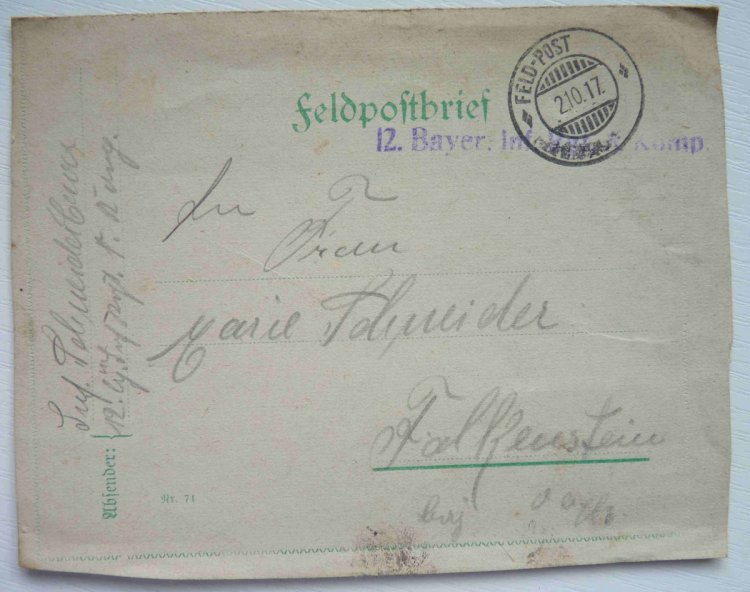 Feldpostbrief
FELD-POST
2.10.17.
12. Bayer. Inf. Komp.
An
Frau
Marie Schneider
Falkenstein
Absender:
Inf. Schneider Max
12.
Nr. 74